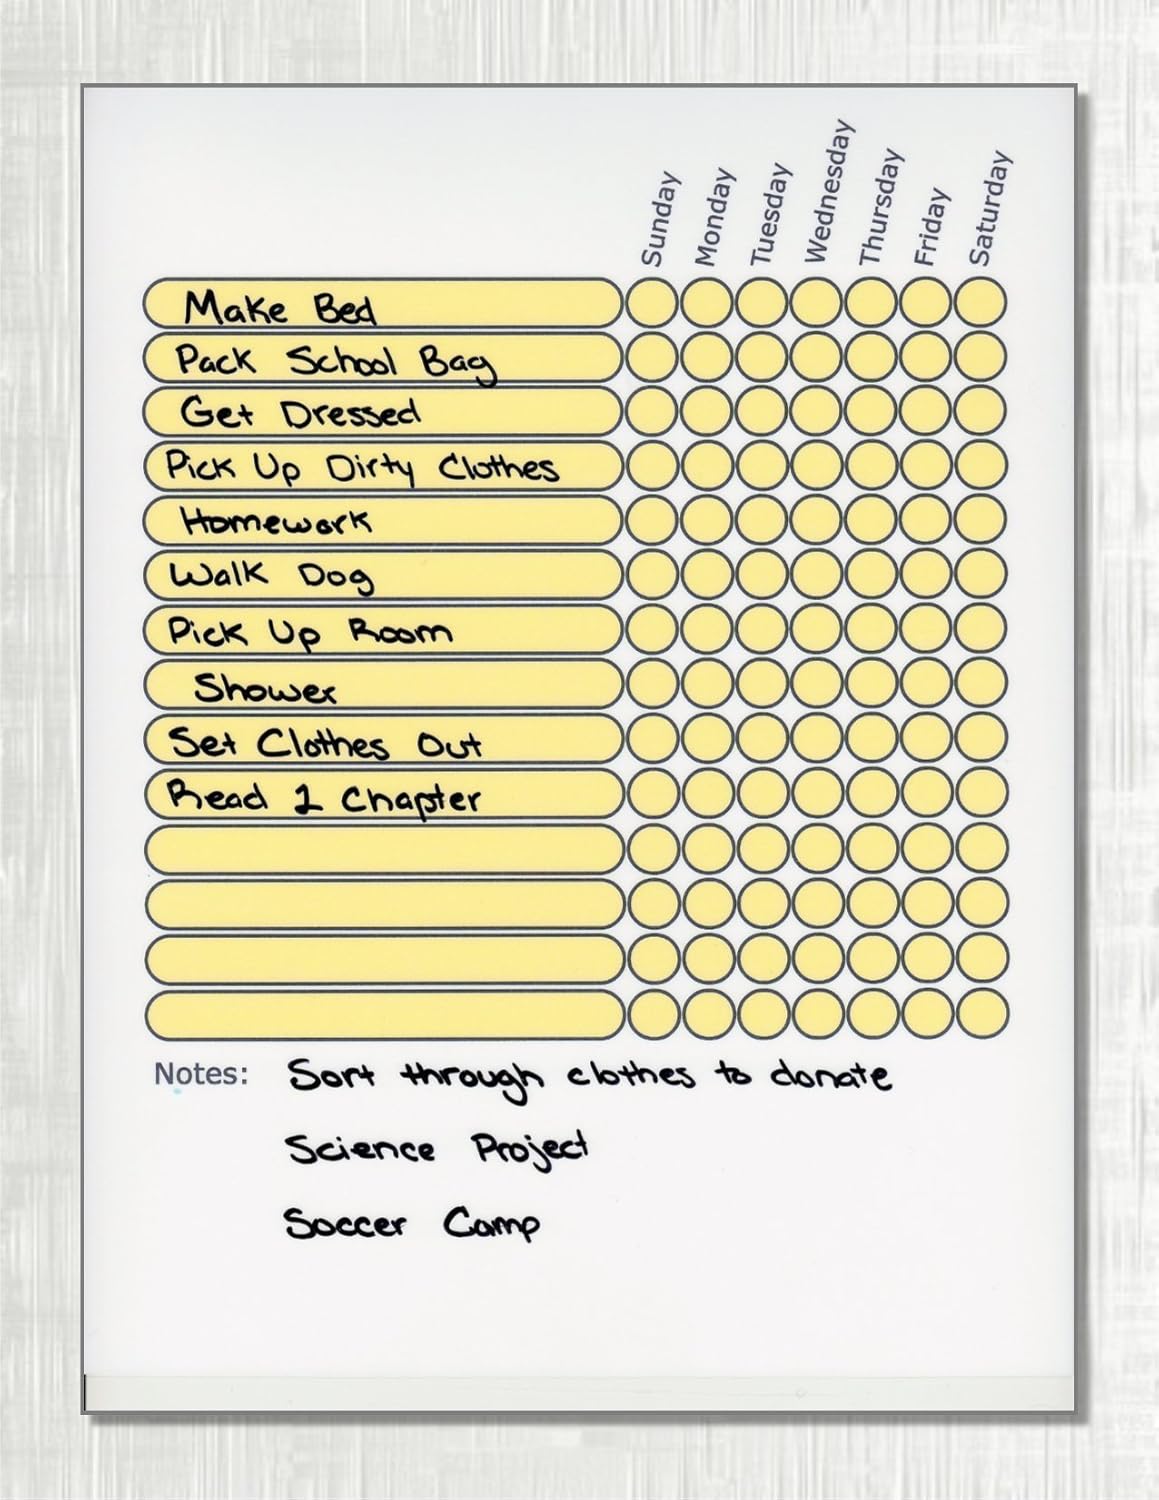 Sunday Monday Tuesday Wednesday Thursday Friday Saturday
Make Bed
Pack School Bag
Get Dressed
Pick Up Dirty Clothes
Homework
Walk Dog
Pick Up Room
Shower
Set Clothes Out
Read 1 Chapter
Notes: Sort through clothes to donate
Science Project
Soccer Camp